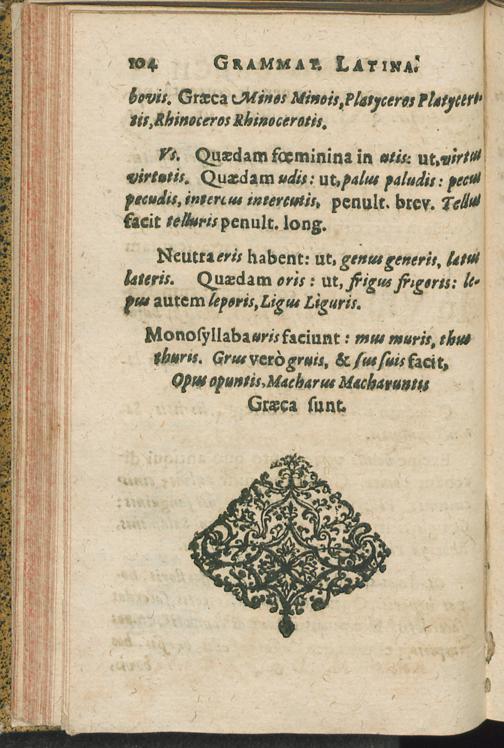 104 GRAMMAT. LATINA.
bovis. Græca Minos Minois, Platyceros Platycero-
tis, Rhinoceros Rhinocerotis.
Vs. Quædam fœminina in utis: ut, virtus
virtutis. Quædam udis: ut, palus paludis: pecus
pecudis, intercus intercutis, penult. brev. Tellus
facit telluris penult. long.
Neutra eris habent: ut, genus generis, latus
lateris. Quædam oris: ut, frigus frigoris: le-
pus autem leporis, Ligus Liguris.
Monoſyllaba uris faciunt: mus muris, thus
thuris. Grus verò gruis, & ſus ſuis facit,
Opus opuntis, Macharus Macharuntis
Græca ſunt.